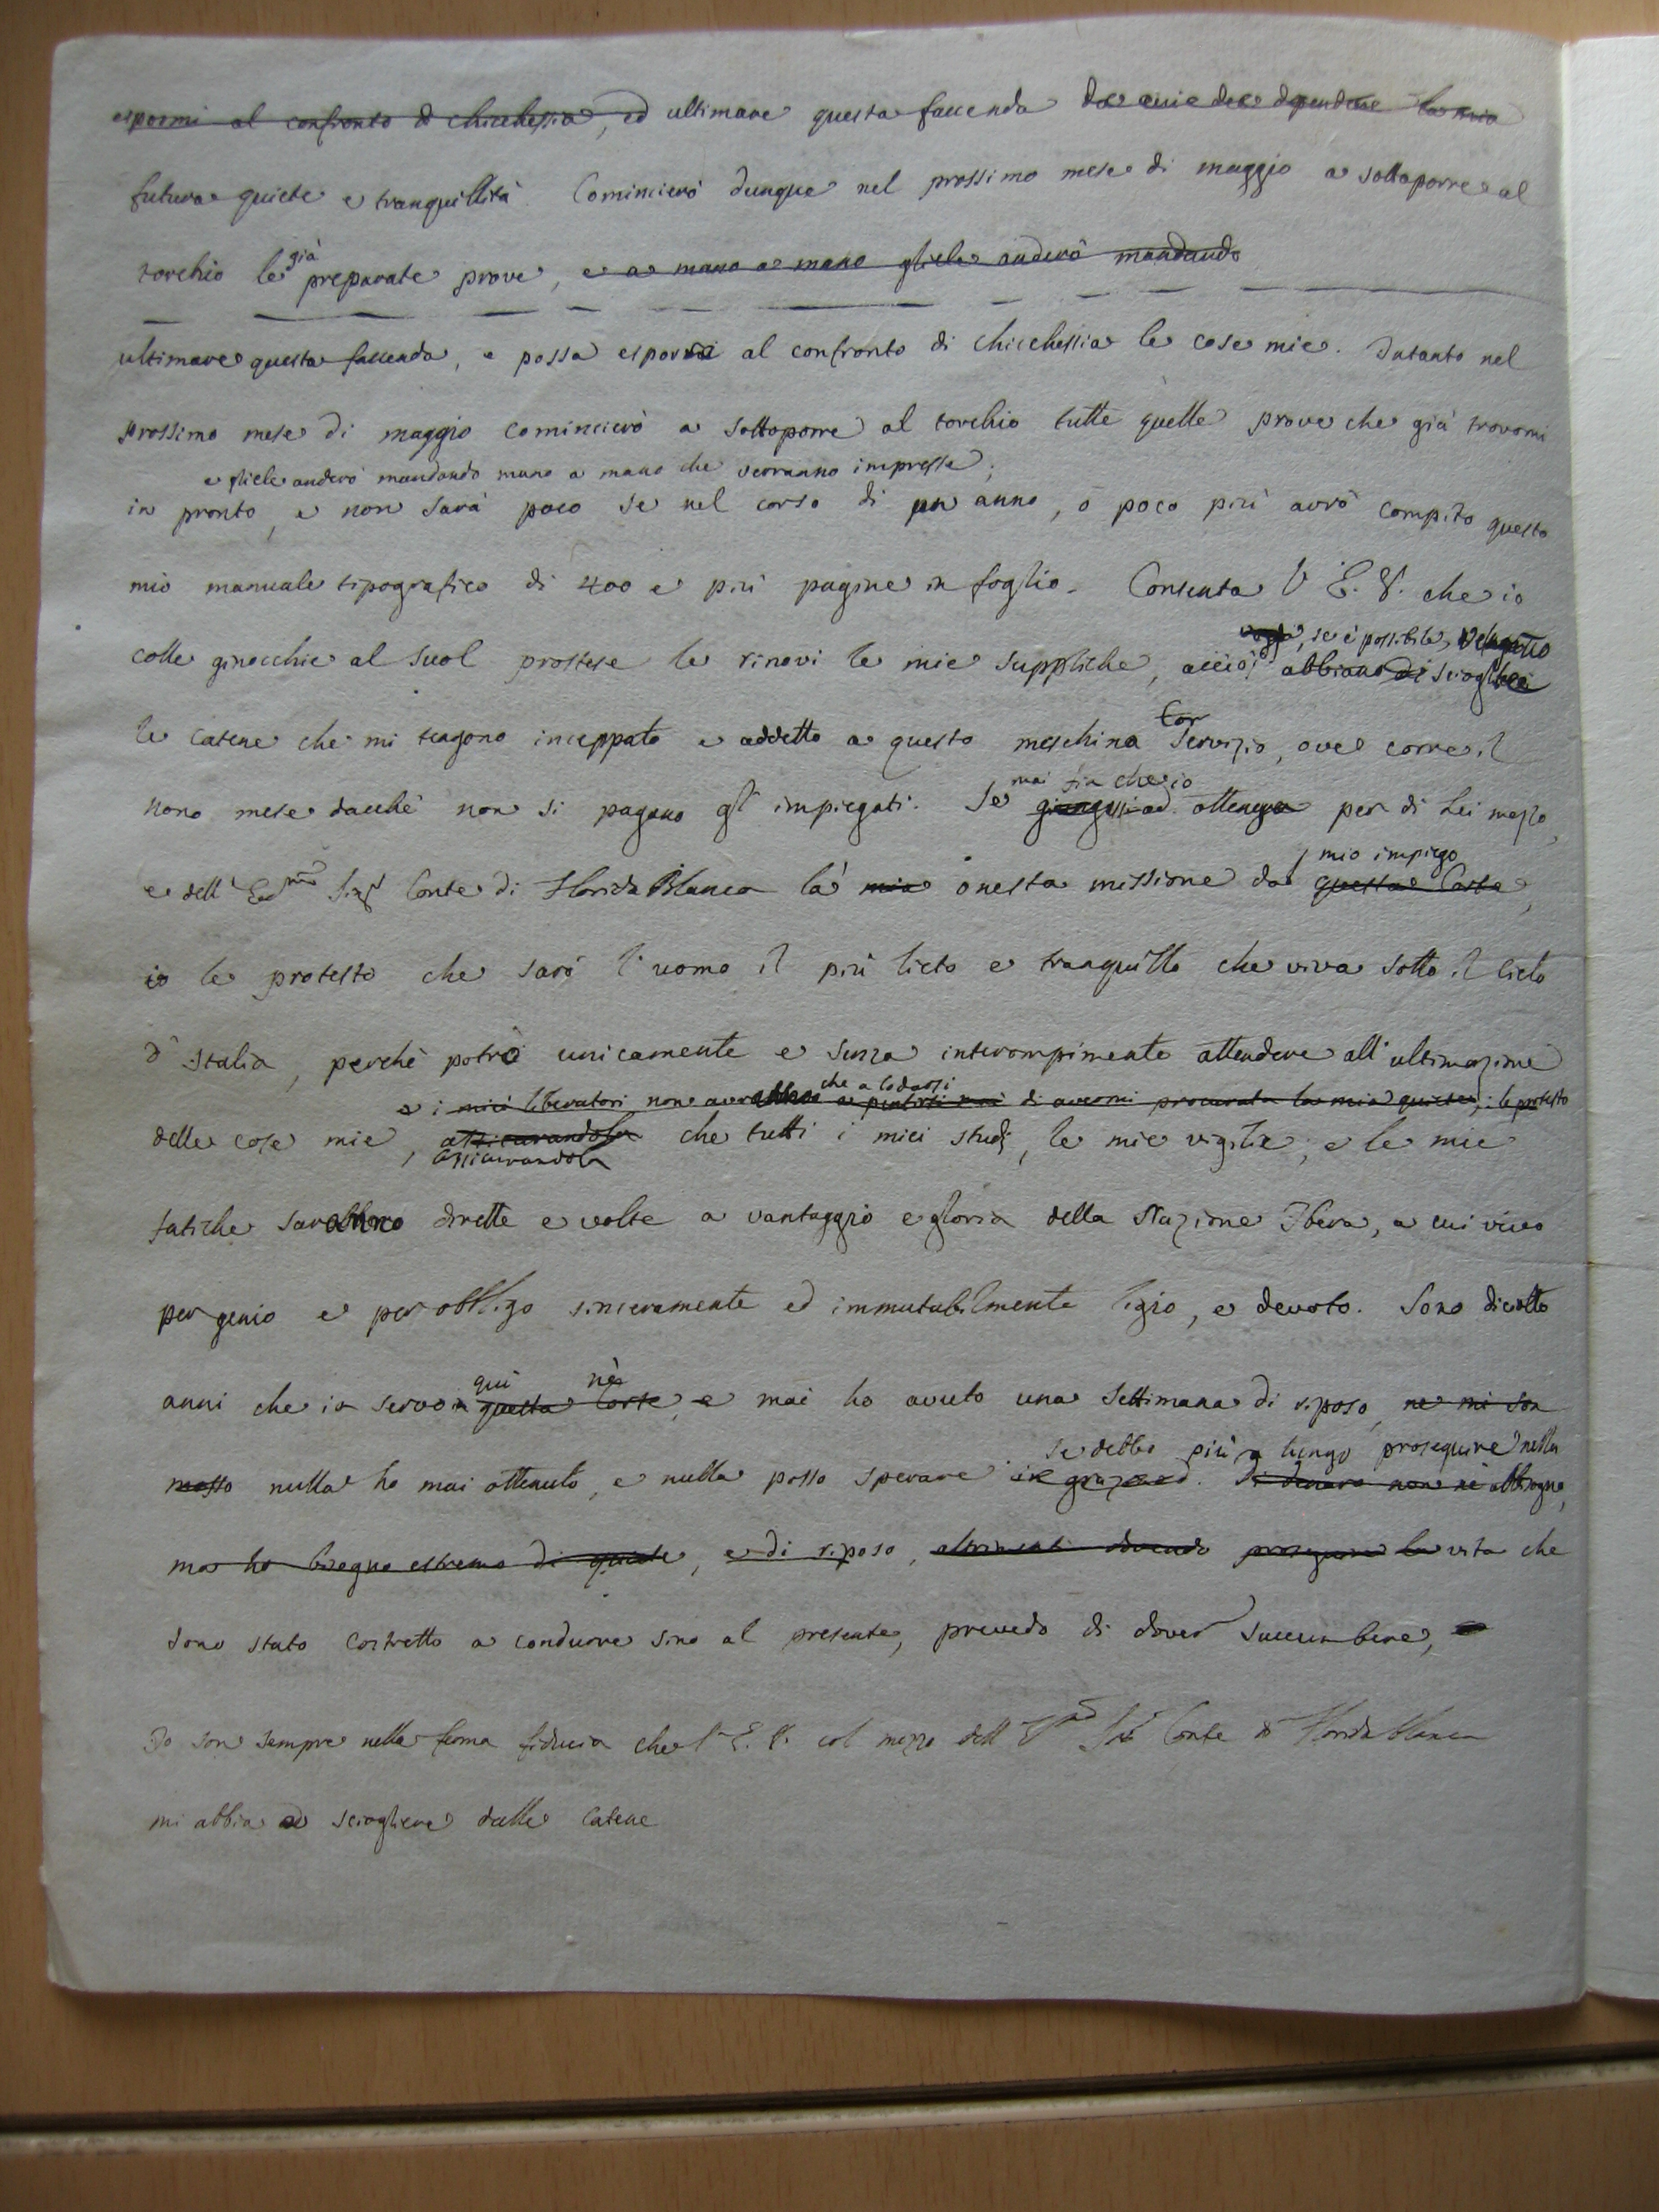 espormi al confronto di chicchessia, ed ultimare questa faccenda da cui dee dipendere la mia
futura quiete e tranquillità. Comincierò dunque nel prossimo mese di maggio a sottoporre al
già
torchio le preparate prove, e a mano a mano gliele anderò mandando
ultimare questa faccenda, e possa esporre al confronto di chicchessia le cose mie. Intanto nel
prossimo mese di maggio comincierò a sottoporre al torchio tutte quelle prove che già trovomi
e gliele anderò mandando mano a mano che verranno impresse;
in pronto, e non sarà poco se nel corso di un anno, o poco più avrò compito questo
mio manuale tipografico di 400 e più pagine in foglio. Consenta V. E. V. che io
voglia, se è possibile,
colle ginocchie al suol prostese le rinovi le mie suppliche, acciò abbiano di sciogliere
le catene che mi tengono inceppato e addetto a questo meschina Servizio, ove corre il
mai fia che io
nono mese dacchè non si pagano gl' impiegati. Se giungessi ad ottenere per di Lei mezzo,
mio impiego
e dell' Conte di Florida Blanca la mia onesta missione da questa Corte,
io le protesto che sarò l'uomo il più lieto e tranquillo che viva sotto il cielo
d'Italia, perchè potrò unicamente e senza interompimento attendere all' ultimazione
che a lodarsi
e i miei liberatori non avranno a pentirsi mai di avermi procurata la mia quiete; i le protesto
delle cose mie, assicurandola che tutti i miei studj, le mie vigilie, e le mie
assicurandola
fatiche saranno dirette e volte a vantaggio e gloria della Nazione Ibera, a cui vivo
per genio e per obbligo sinceramente ed immutabilmente ligio, e devoto. Sono diciotto
qui nè
anni che io servo a questa Corte, e mai ho avuto una settimana di riposo, nè mi son
se debbo più a lungo proseguire nella
mosso nulla ho mai ottenuto, e nulla posso sperare in grazia. Di denaro non nè abbisogno,
ma ho bisogno estremo di quiete, e di riposo, altrimenti dovendo proseguire la vita che
sono stato costretto a condurre sino al presente, prevedo di dover succumbere,
Io son sempre nella ferma fiducia che l' E. V. col mezzo dell' Conte di Florida blanca
mi abbia a sciogliere dalle catene